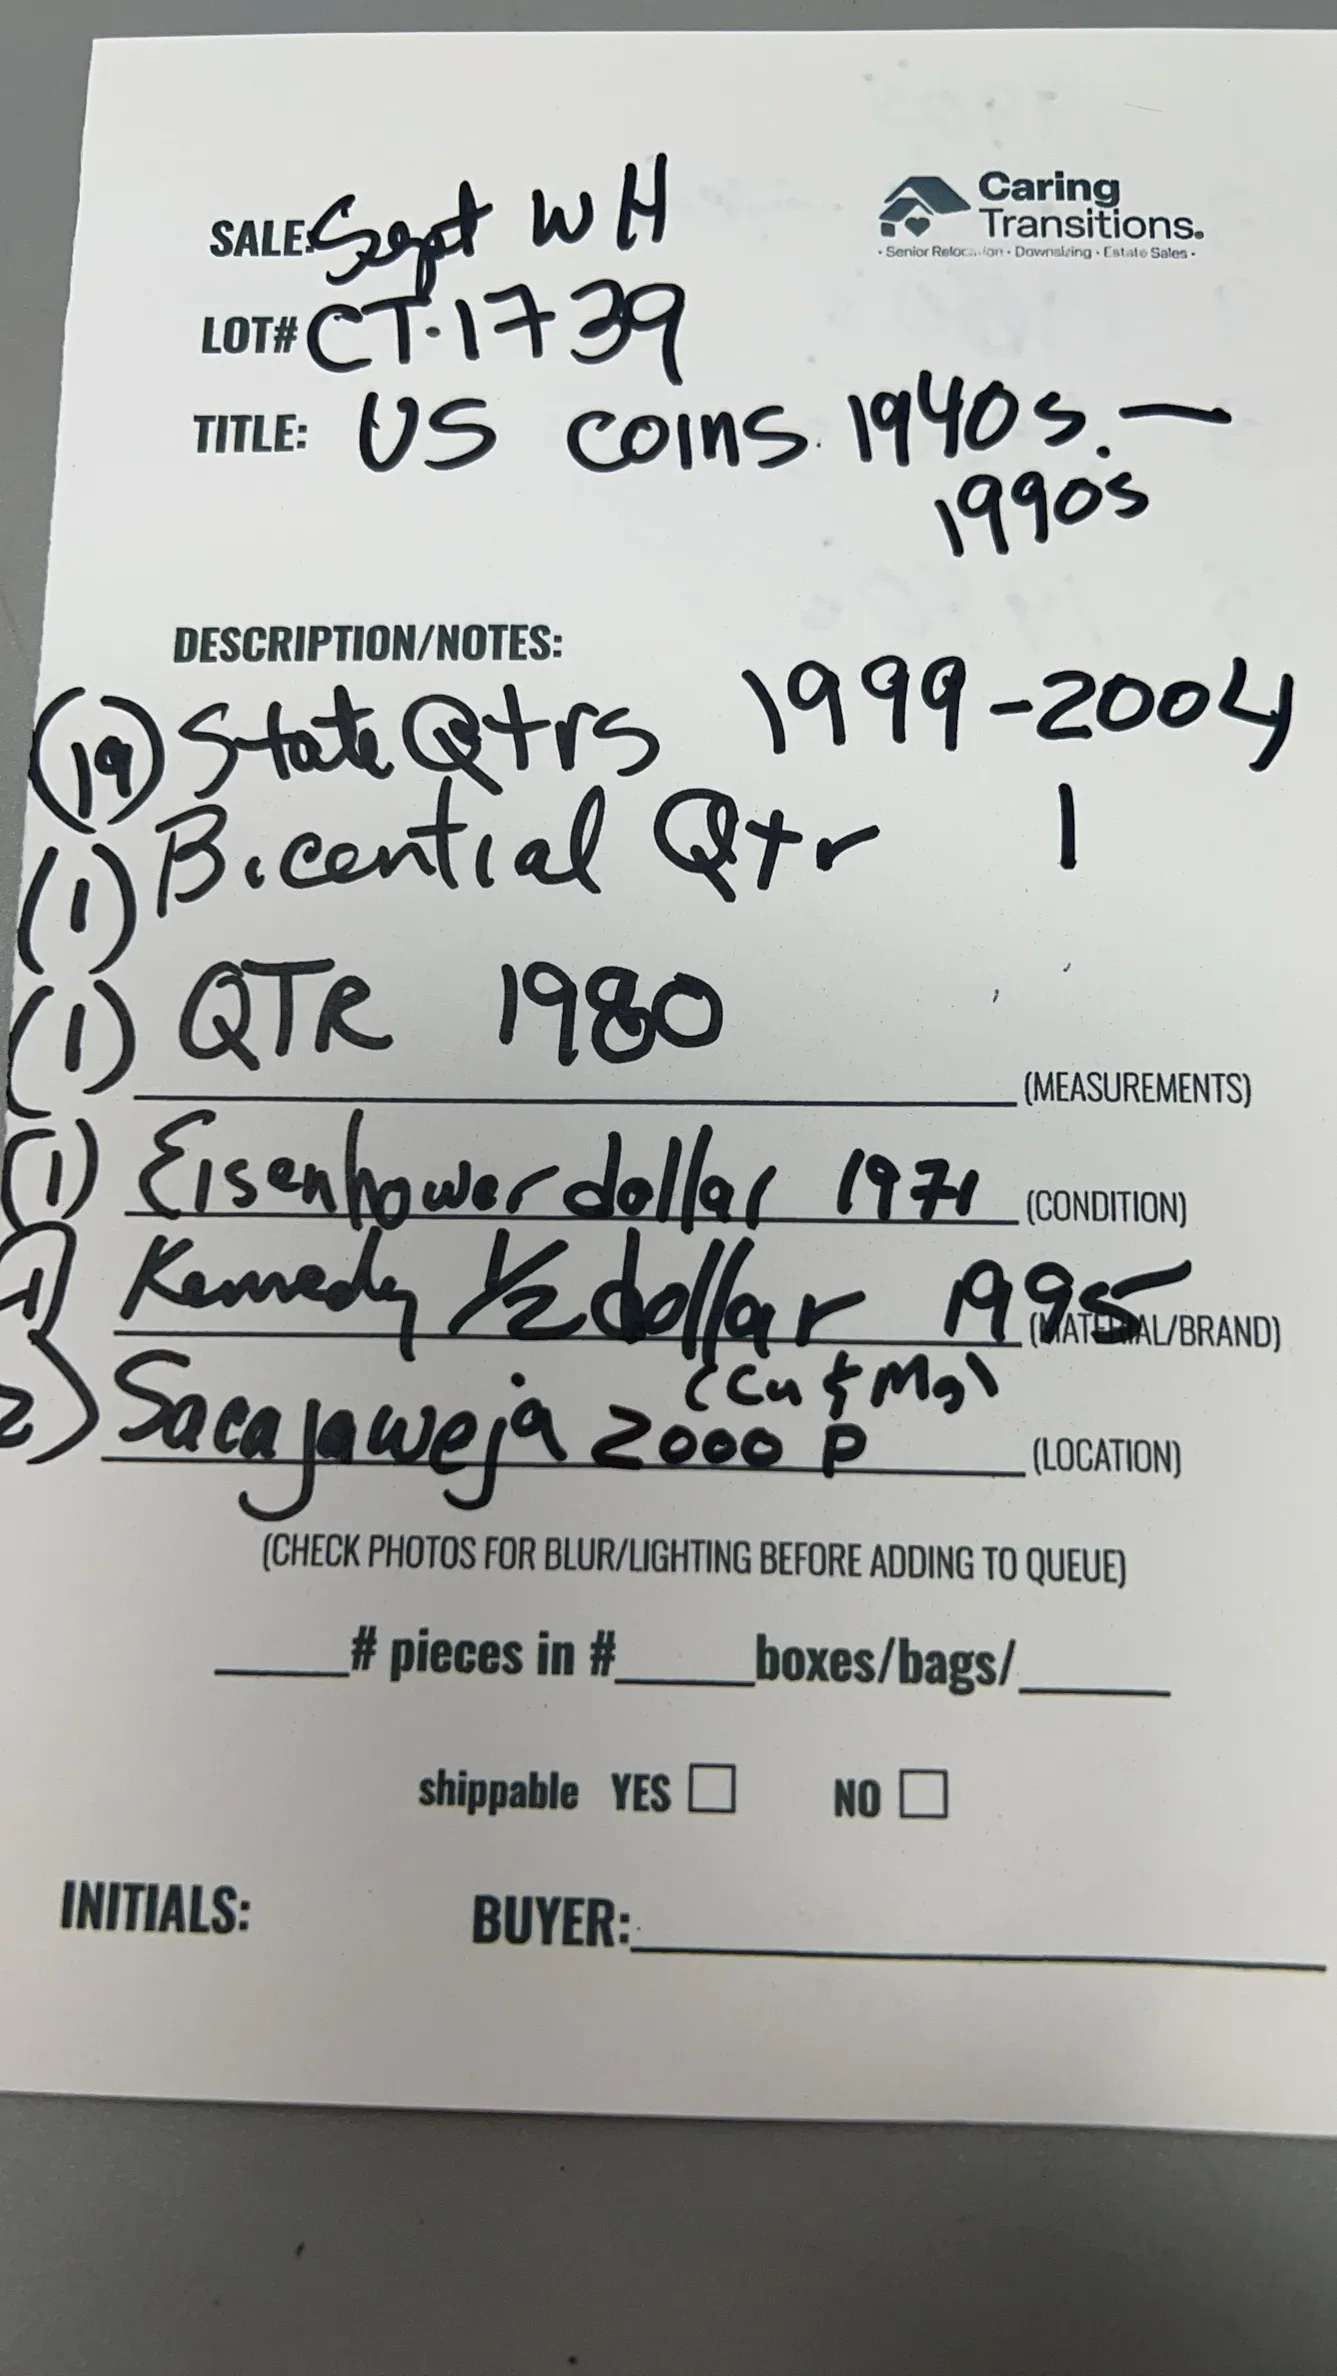 Caring
Transitions.
• Senior Relocation • Downsizing • Estate Sales •
SALE: Sept WH
LOT# CT-1739
TITLE: US coins 1940s. —
1990s
DESCRIPTION/NOTES:
(19) State Qtrs 1999-2004
(1) Bicential Qtr 1
(1) QTR 1980
(MEASUREMENTS)
(1) Eisenhower dollar 1971 (CONDITION)
1) Kennedy 1/2 dollar 1995 (MATERIAL/BRAND)
(Cu & Mg)
2) Sacajaweja 2000 P (LOCATION)
(CHECK PHOTOS FOR BLUR/LIGHTING BEFORE ADDING TO QUEUE)
# pieces in # boxes/bags/
shippable YES NO
INITIALS: BUYER: